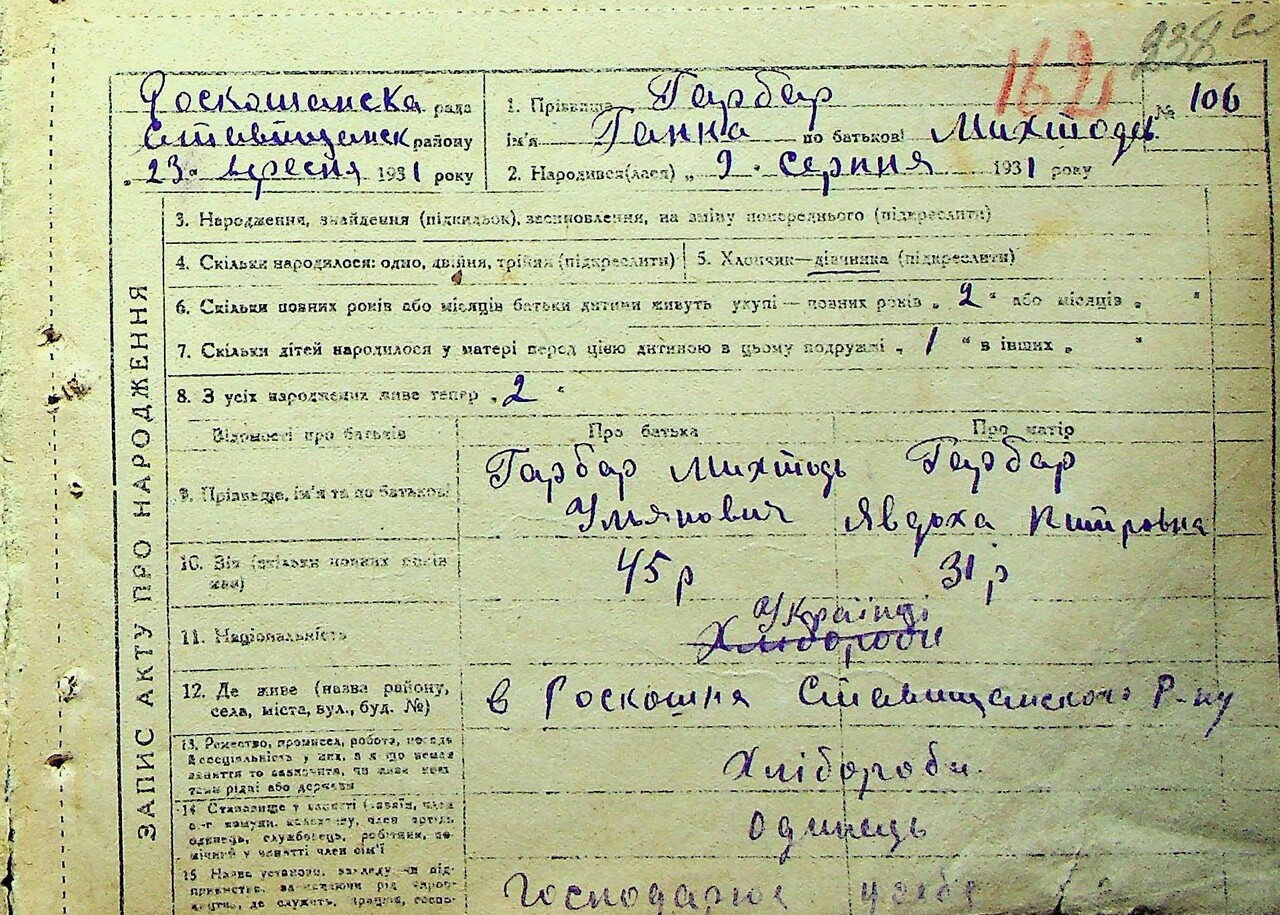 162
238
Роскошанска рада
Ставищанск району
„23“ вересня 1931 року
1. Прізвище Гарбар
ім'я Ганна по батькові Михтодь
2. Народився(лася) „ 9 “ серпня 1931 року
№ 106
ЗАПИС АКТУ ПРО НАРОДЖЕННЯ
3. Народження, знайдення (підкидьок), засиновлення, на зміну попереднього (підкреслити)
4. Скільки народилося: одно, двійня, трійня (підкреслити)
5. Хлопчик—дівчинка (підкреслити)
6. Скільки повних років або місяців батьки дитини живуть укупі — повних років „ 2 “ або місяців „ “
7. Скільки дітей народилося у матері перед цією дитиною в цьому подружжі „ 1 “ в інших „ “
8. З усіх народжених живе тепер „ 2 “
Відомості про батьків
Про батька
Про матір
9. Прізвище, ім'я та по батькові
Гарбар Михтодь
Ульянович
Гарбар
Явдоха Питровна
10. Вік (скільки повних років
має)
45 р
31 р
11. Національність
Українці
Хлібороби
12. Де живе (назва району,
села, міста, вул., буд. №)
в Роскошня Ставищанського Р-ну
13. Ремество, промисел, робота, посада
й спеціальність у них, а якщо немає
заняття то зазначити, чи живе кош-
тами рідні або держави
Хлібороби.
14. Становище у занятті (хазяїн, член
с.-г. комуни, колгоспу, член артілі,
одинець, службовець, робітник, по-
мічний у занятті член сім'ї
одинець
15 Назва установи, закладу чи під-
приємства, зазначаючи рід вироб-
ництва, де служить, працює, госпо-
господарює у себе